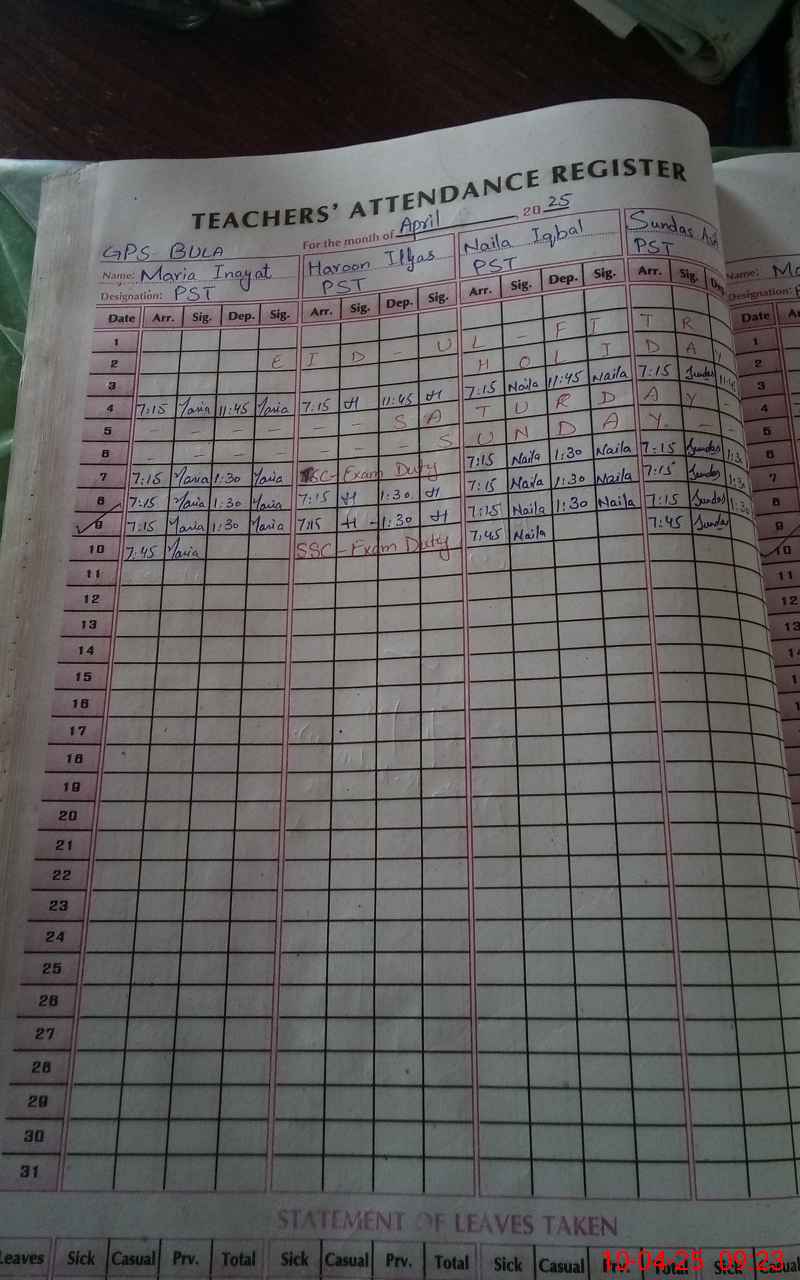 TEACHERS' ATTENDANCE REGISTER
GPS BULA For the month of April 2025
Name: Maria Inayat Haroon Ilyas Naila Iqbal Sundas
Designation: PST PST PST PST Designation:
Date Arr. Sig. Dep. Sig. Arr. Sig. Dep. Sig. Arr. Sig. Dep. Sig. Arr. Sig. Date
1
2 E I D - U L - F I T R
3 H O L I D A Y
4 7:15 Maria 11:45 Maria 7:15 H 11:45 H 7:15 Naila 11:45 Naila 7:15 Sundas 11:45
5 - - - - - - S A T U R D A Y -
6 - - - - - - - S U N D A Y - -
7 7:15 Maria 1:30 Maria SSC-Exam Duty 7:15 Naila 1:30 Naila 7:15 Sundas 1:30
8 7:15 Maria 1:30 Maria 7:15 H 1:30 H 7:15 Naila 1:30 Naila 7:15 Sundas 1:30
9 7:15 Maria 1:30 Maria 7:15 H 1:30 H 7:15 Naila 1:30 Naila 7:15 Sundas 1:30
10 7:45 Maria SSC-Exam Duty 7:45 Naila 7:45 Sundas
11
12
13
14
15
16
17
18
19
20
21
22
23
24
25
26
27
28
29
30
31
STATEMENT OF LEAVES TAKEN
Leaves Sick Casual Prv. Total Sick Casual Prv. Total Sick Casual Prv. Total Sick Casual
10-04-25 09:23